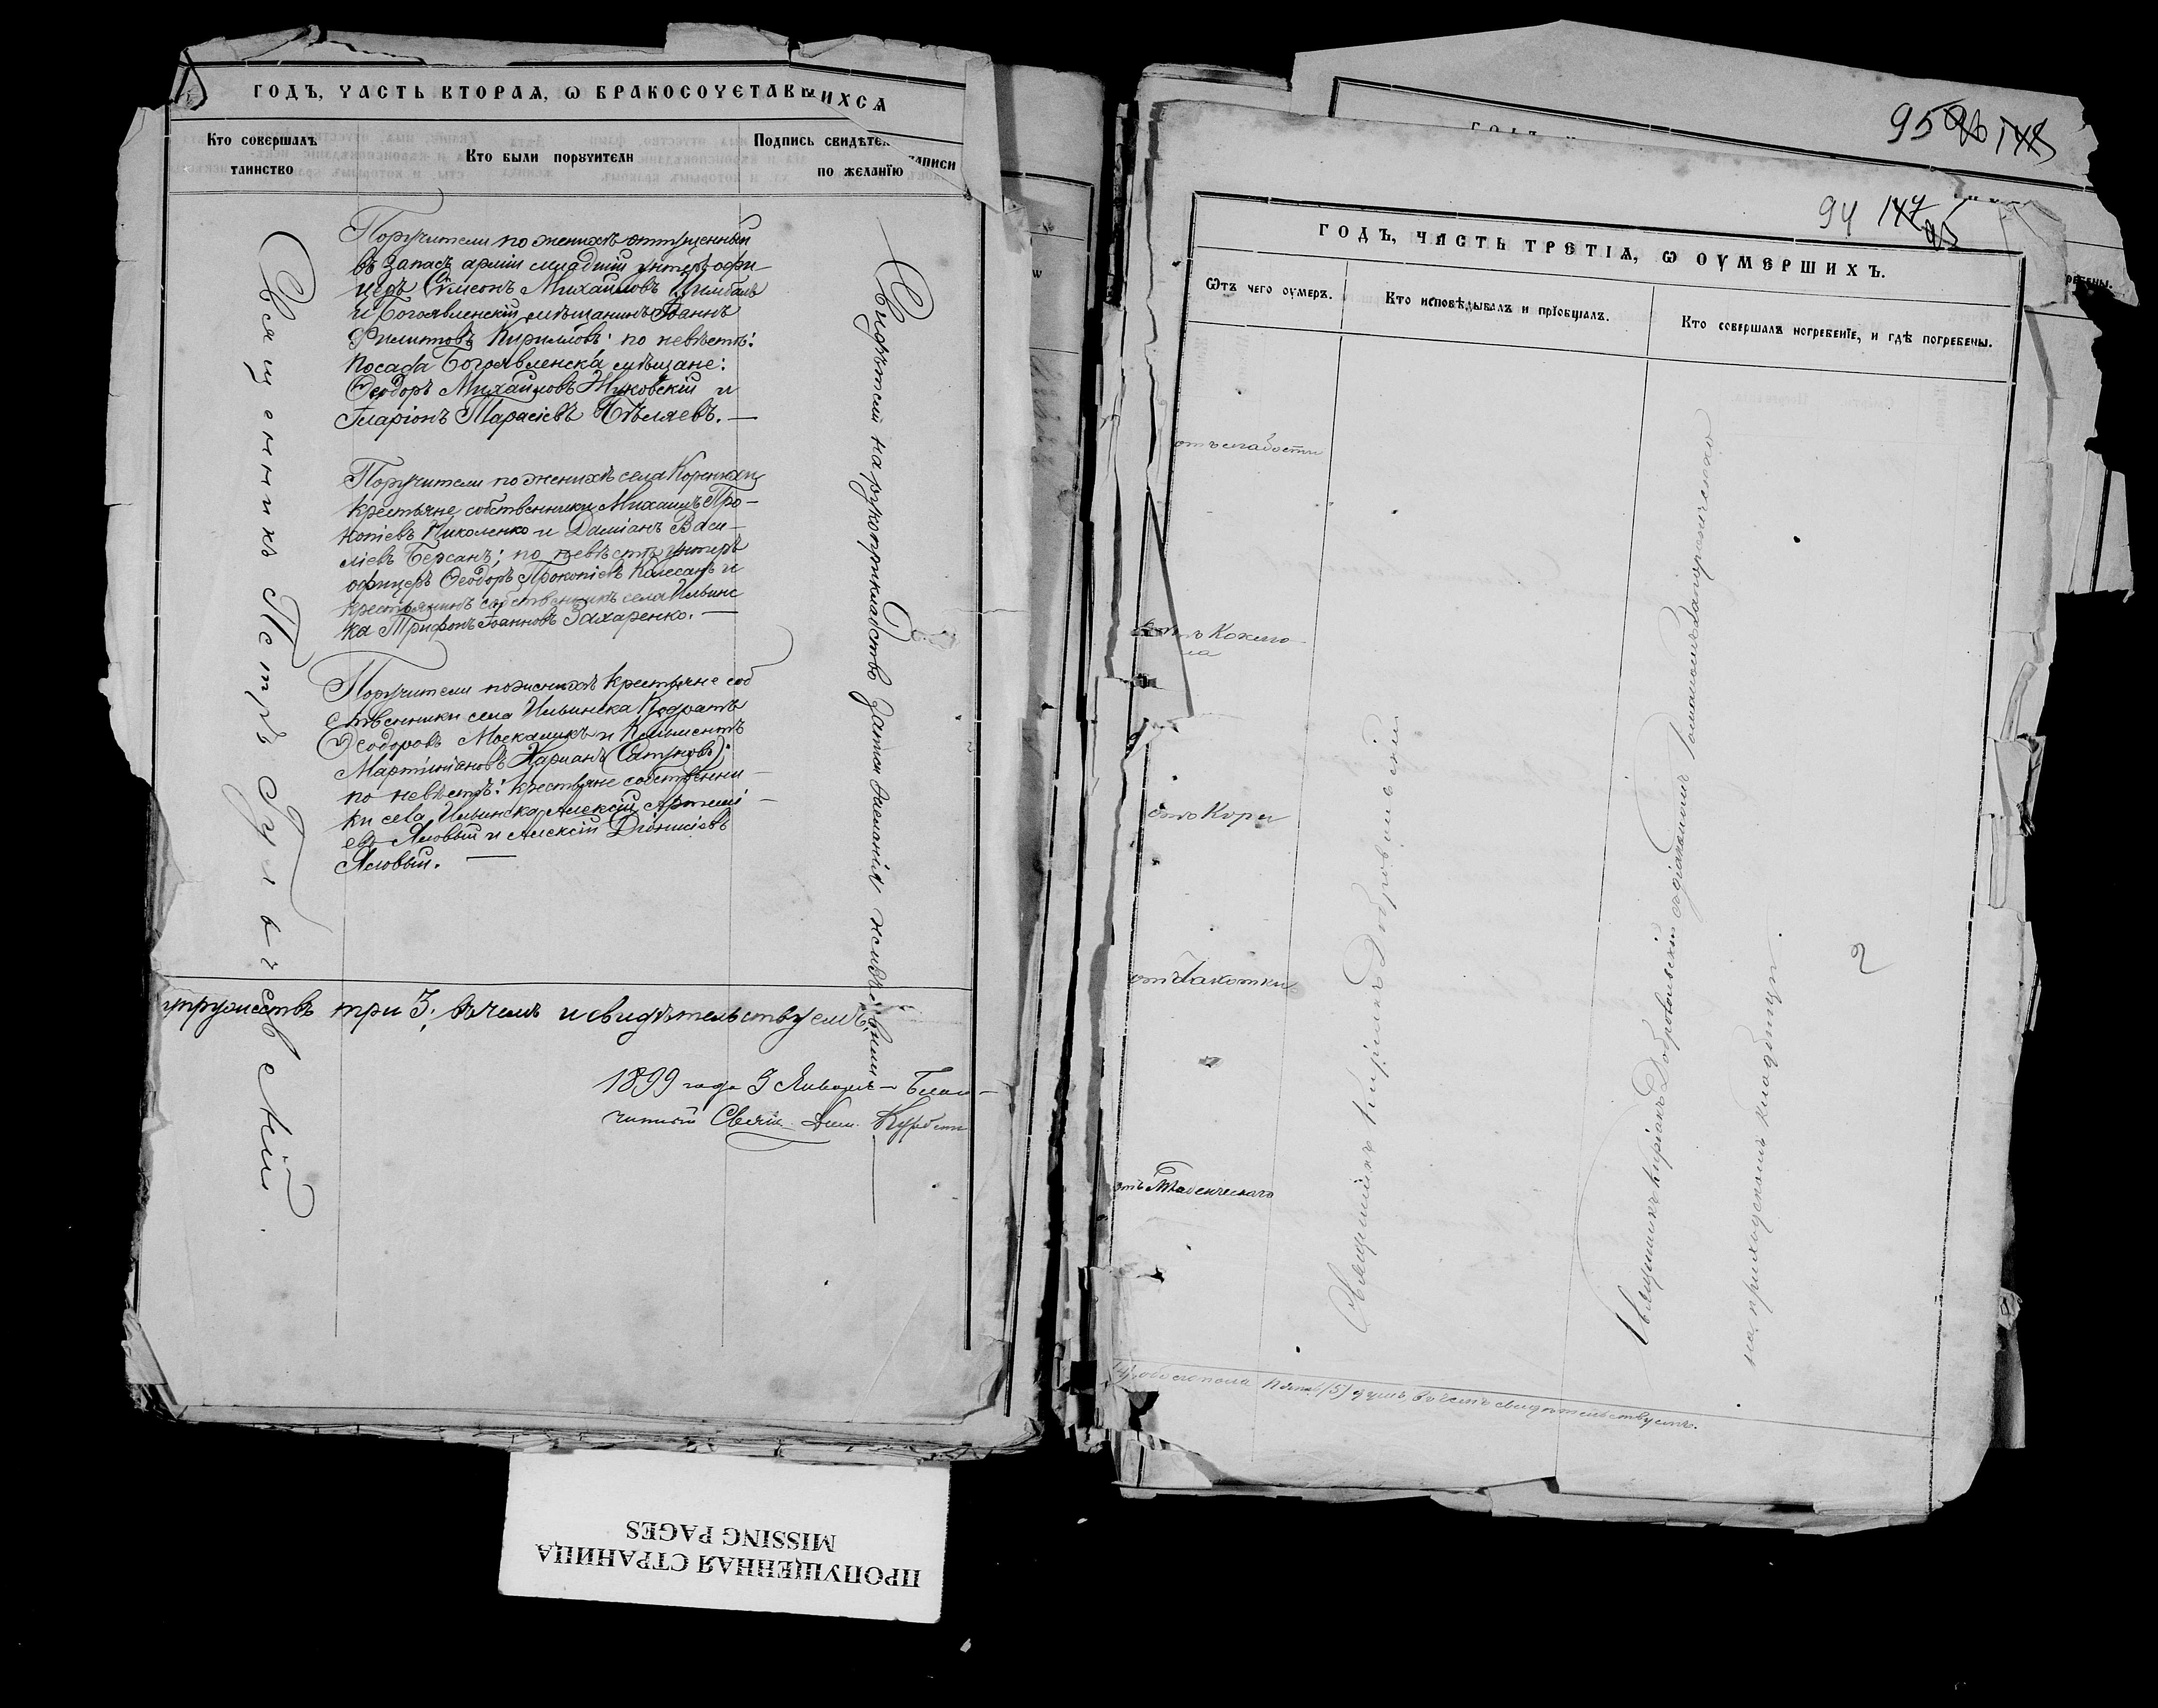 ГОДЪ, ЧАСТЬ ВТОРАѦ, Ѡ БРАКОСОЧЕТАВШИХСѦ
Кто совершалъ таинство
Кто были поручители
Подпись свидѣтел записи по желанїю
Священникъ Петръ
Поручители по женихѣ отпущенный
въ запасъ арміи младшій унтеръ офи-
церъ Сѵмеонъ Михайловъ Цимбалъ
и Богоявленскій мѣщанинъ Іоаннъ
Филиповъ Кирилловъ: по невѣстѣ:
посада Богоявленска мѣщане:
Ѳеодоръ Михайловъ Жуковскій и
Иларіонъ Тарасіевъ Бѣляевъ. —
Поручители по женихѣ села Коренихи
крестьяне собственники Михаилъ Про-
копіевъ Николенко и Даміанъ Васи-
ліевъ Берсанъ; по невѣстѣ унтеръ
офицеръ Ѳеодоръ Прокопіевъ Колесанъ и
крестьянинъ собственникъ села Ильинс
ка Трифонъ Іоанновъ Захаренко. —
Поручители по женихѣ крестьяне соб
ственники села Ильинска Кодратъ
Ѳеодоровъ Москаликъ и Климентъ
Мартиніановъ
по невѣстѣ: крестьяне собственни-
ки села Ильинска Алексій Артемі-
евъ Яловый и Алексій Діонисіевъ
Яловый. —
Свидѣтели на рукоприкладство
супружествъ три 3; въ чемъ и свидѣтельствуемъ.
1899 года Января Благо-
чинный Свящ.
95 96 148
94 147 95
ГОДЪ, ЧАСТЬ ТРЕТІѦ, Ѡ ОУМЕРШИХЪ.
Ѿтъ чего оумеръ.
Кто исповѣдывалъ и прїобщалъ.
Кто совершалъ погребенїе, и гдѣ погребены.
отъ слабости
отъ Коклю
ша
отъ Кори
отъ Чахотки
отъ Младенческаго
Священникъ Кипріанъ Добровольскій
Священникъ Кипріанъ Добровольскій съ діакономъ
на приходскомъ кладбищѣ.
2
обоего пола пять (5) душъ, въ чемъ свидѣтельствуемъ.
ПРОПУЩЕННАЯ СТРАНИЦА
MISSING PAGES